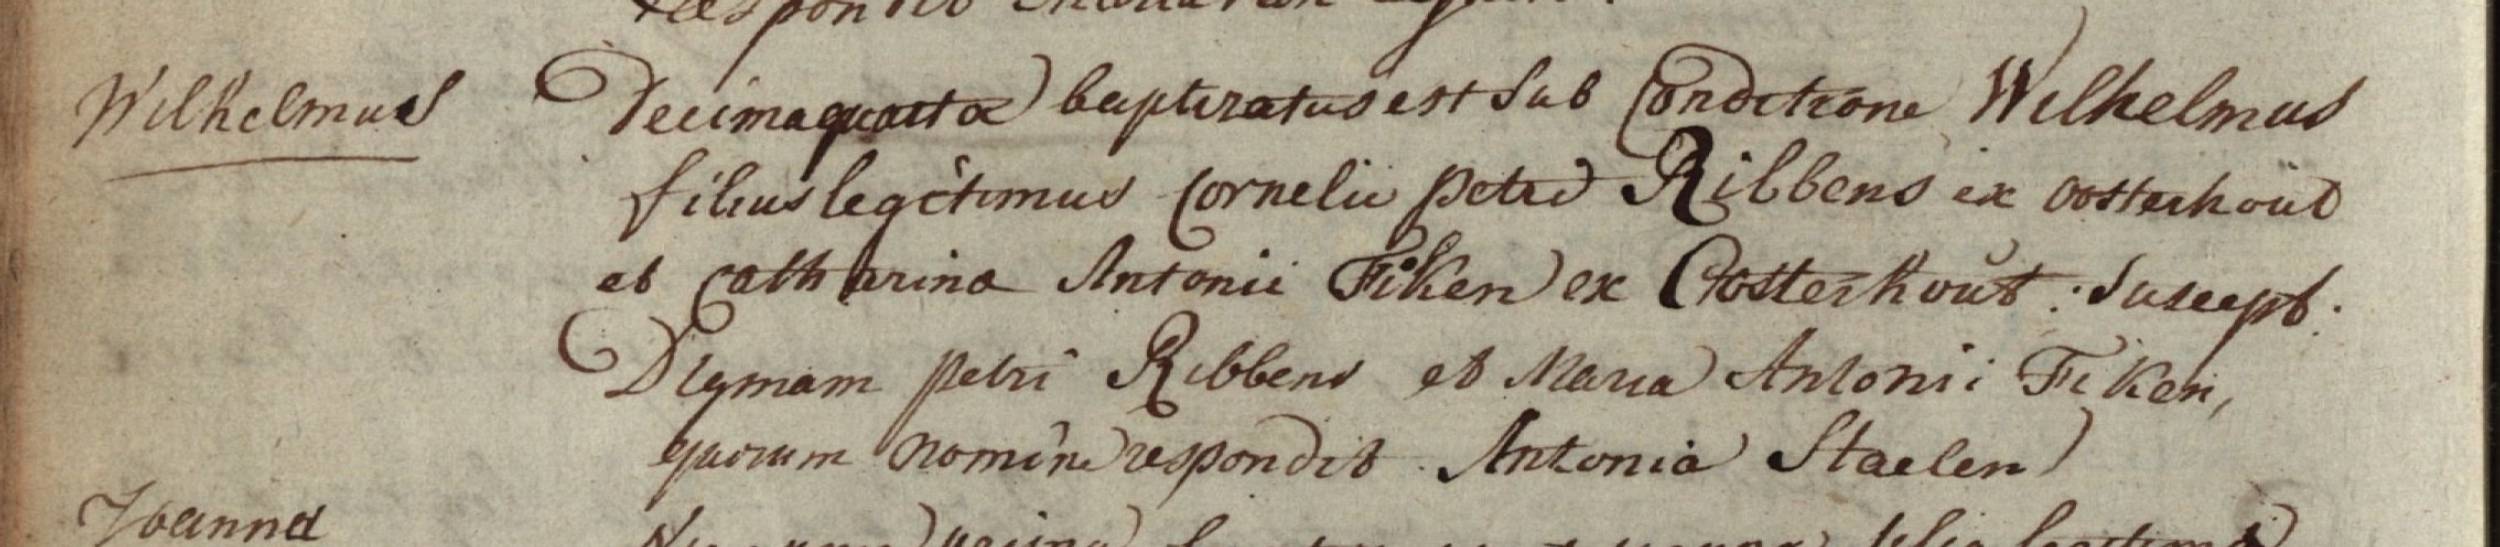 Wilhelmus
Decima quarta baptizatus est sub conditione Wilhelmus
filius legitimus Cornelii Petri Ribbens ex oosterhout
et Catharina Antonii Fiken ex Oosterhout : Suscept.
Dlymam petri Ribbens et Maria Antonii Fiken,
quorum nomine respondit Antonia Staelen
Joanna